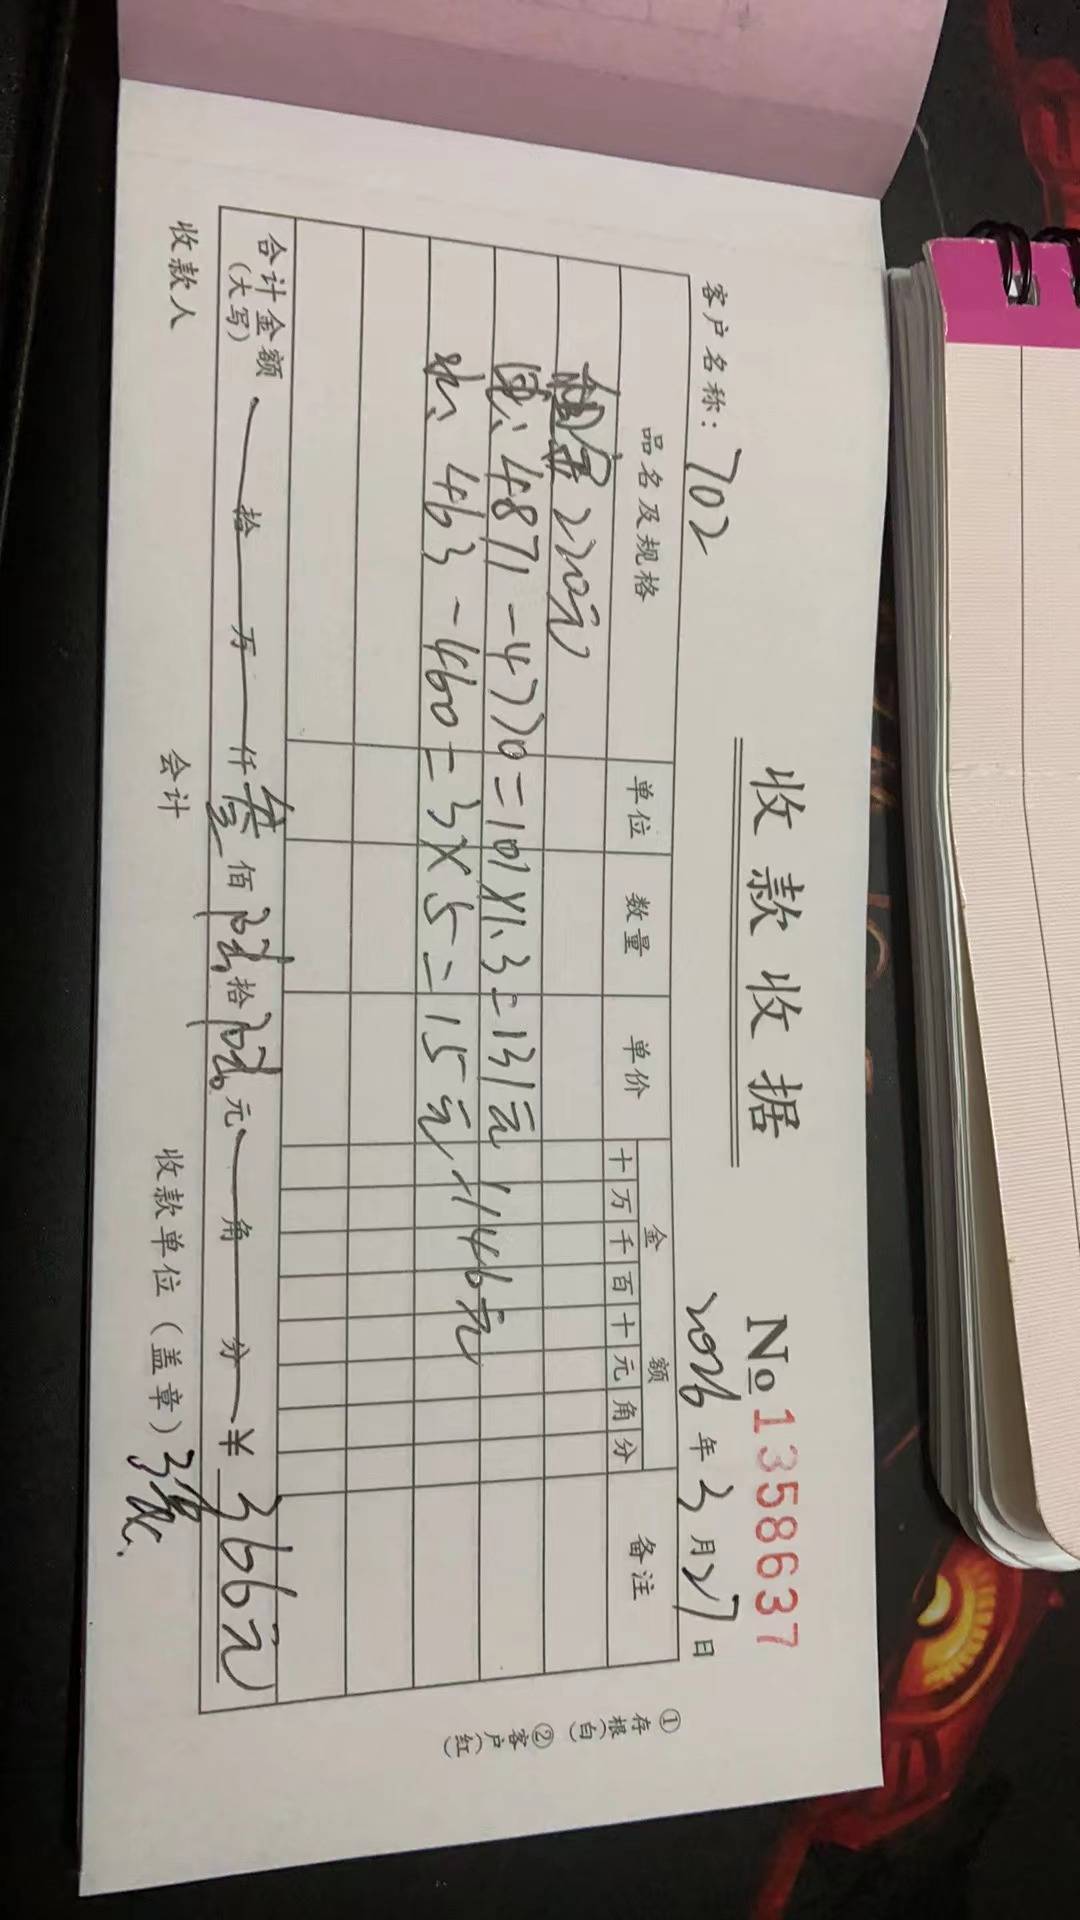 收款收据
No 1358637
客户名称：702
2026年3月27日
品名及规格 单位 数量 单价 金额 备注
十万千百十元角分
220元
电：4871-4770=101×1.3=131元
水：463-460=3×5=15元 146元
合计金额（大写） 拾 万 仟 叁佰陆拾陆元 角 分 ¥366元
收款人 会计 收款单位（盖章）
①存根（白） ②客户（红）